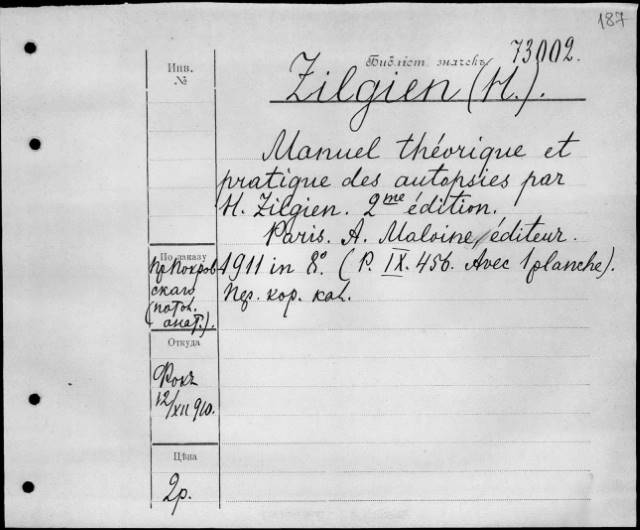 187
Инв.
№
Библіот. значекъ 73002.
Zilgien (H.).
Manuel théorique et
pratique des autopsies par
H. Zilgien. 2me édition.
Paris. A. Maloine, éditeur.
1911 in 8°. (P. IX. 456. Avec 1 planche).
Пер. кор. кол.
По заказу
Пр Покров
скаго
(патол.
анат.).
Откуда
Фокъ
12/XII 910.
Цѣна
2р.